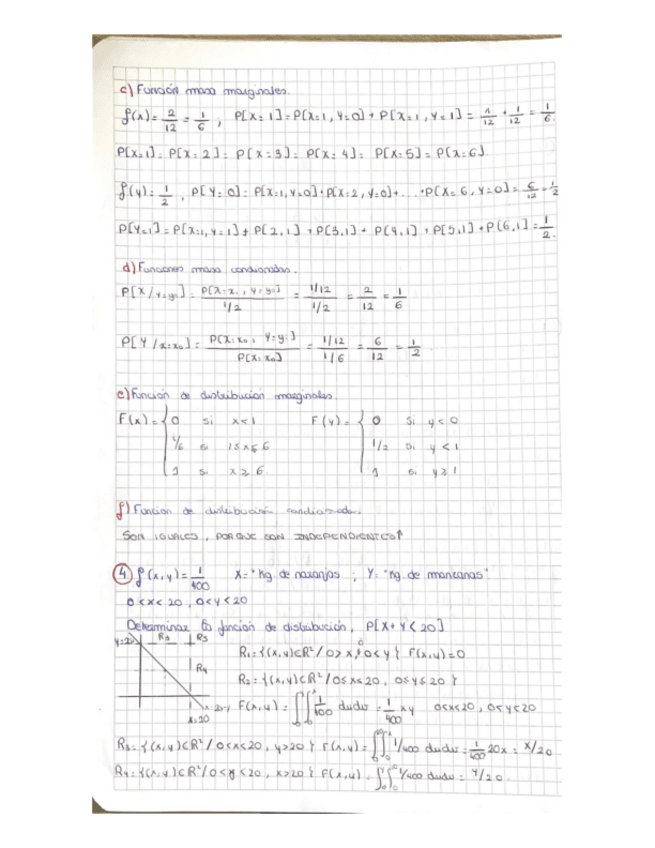 c) Función masa marginales.
f(x) = 2/12 = 1/6 , P[X=1] = P[X=1, Y=0] + P[X=1, Y=1] = 1/12 + 1/12 = 1/6
P[X=1] = P[X=2] = P[X=3] = P[X=4] = P[X=5] = P[X=6].
f(y) = 1/2 , P[Y=0] = P[X=1, Y=0] + P[X=2, Y=0] + ... + P[X=6, Y=0] = 6/12 = 1/2
P[Y=1] = P[X=1, Y=1] + P[2,1] + P[3,1] + P[4,1] + P[5,1] + P(6,1] = 1/2.
d) Funciones masa condionadas.
P[X/Y=y₀] = P[X=x₁, Y=y₀]/1/2 = 1/12/1/2 = 2/12 = 1/6
P[Y/X=x₀] = P[X=x₀, Y=yᵢ]/P[X=x₀] = 1/12/1/6 = 6/12 = 1/2
e) Función de distribución marginales.
F(x) = { 0 si x<1 F(y) = { 0 si y<0
1/6 si 1≤x≤6 1/2 si y<1
1 si x≥6 1 si y≥1
f) Función de distribución condicionada.
SON IGUALES, PORQUE SON INDEPENDIENTES↑
4 f(x,y) = 1/400 X="Kg. de naranjas , Y= "Kg. de manzanas"
0<x<20, 0<y<20
Determinar la función de distribución, P[X+Y<20]
y=20 R3 R5
R₁={(x,y)∈R²/0>x, 0<y} F(x,y)=0
R4
R₂={(x,y)∈R²/0≤x≤20, 0≤y≤20}
x=20 F(x,y) = ∫∫ 1/400 dudv = 1/400 xy 0≤x≤20, 0≤y≤20
R₃={(x,y)∈R²/0<x<20, y>20} F(x,y)=∫∫ 1/400 dudv = 1/400 20x = x/20
R₄={(x,y)∈R²/0<y<20, x>20} F(x,y)=∫∫ 1/400 dudv = y/20